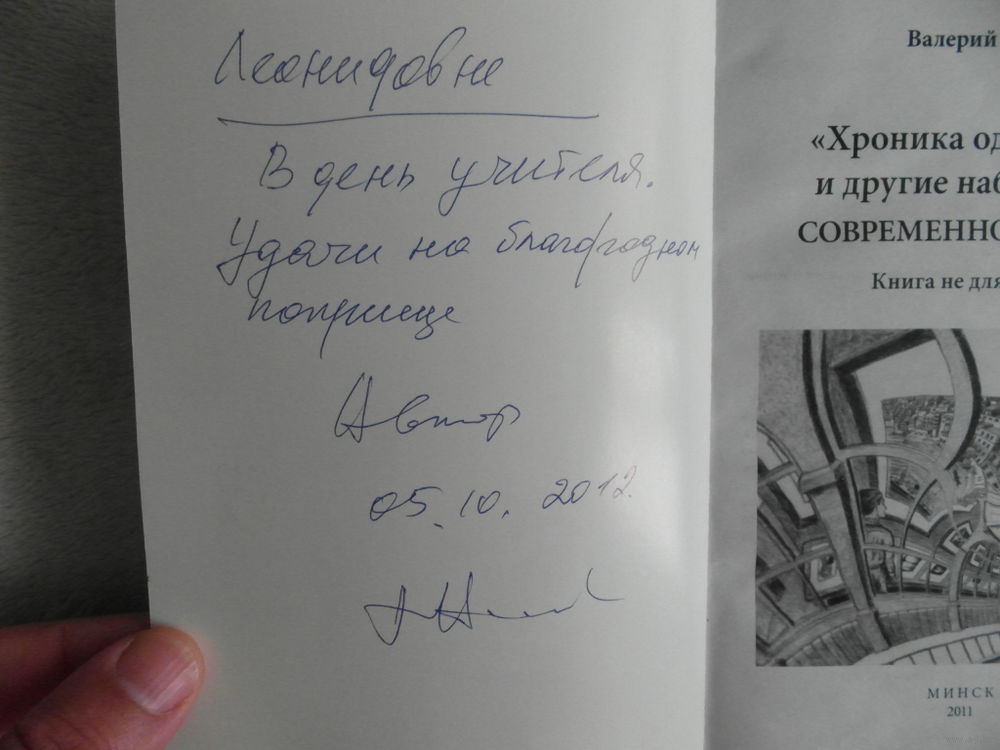 Леонидовне
В день учителя.
Удачи на благородном
поприще
Автор
05.10.2012.
Валерий
«Хроника од
и другие наб
СОВРЕМЕННО
Книга не для
МИНСК
2011